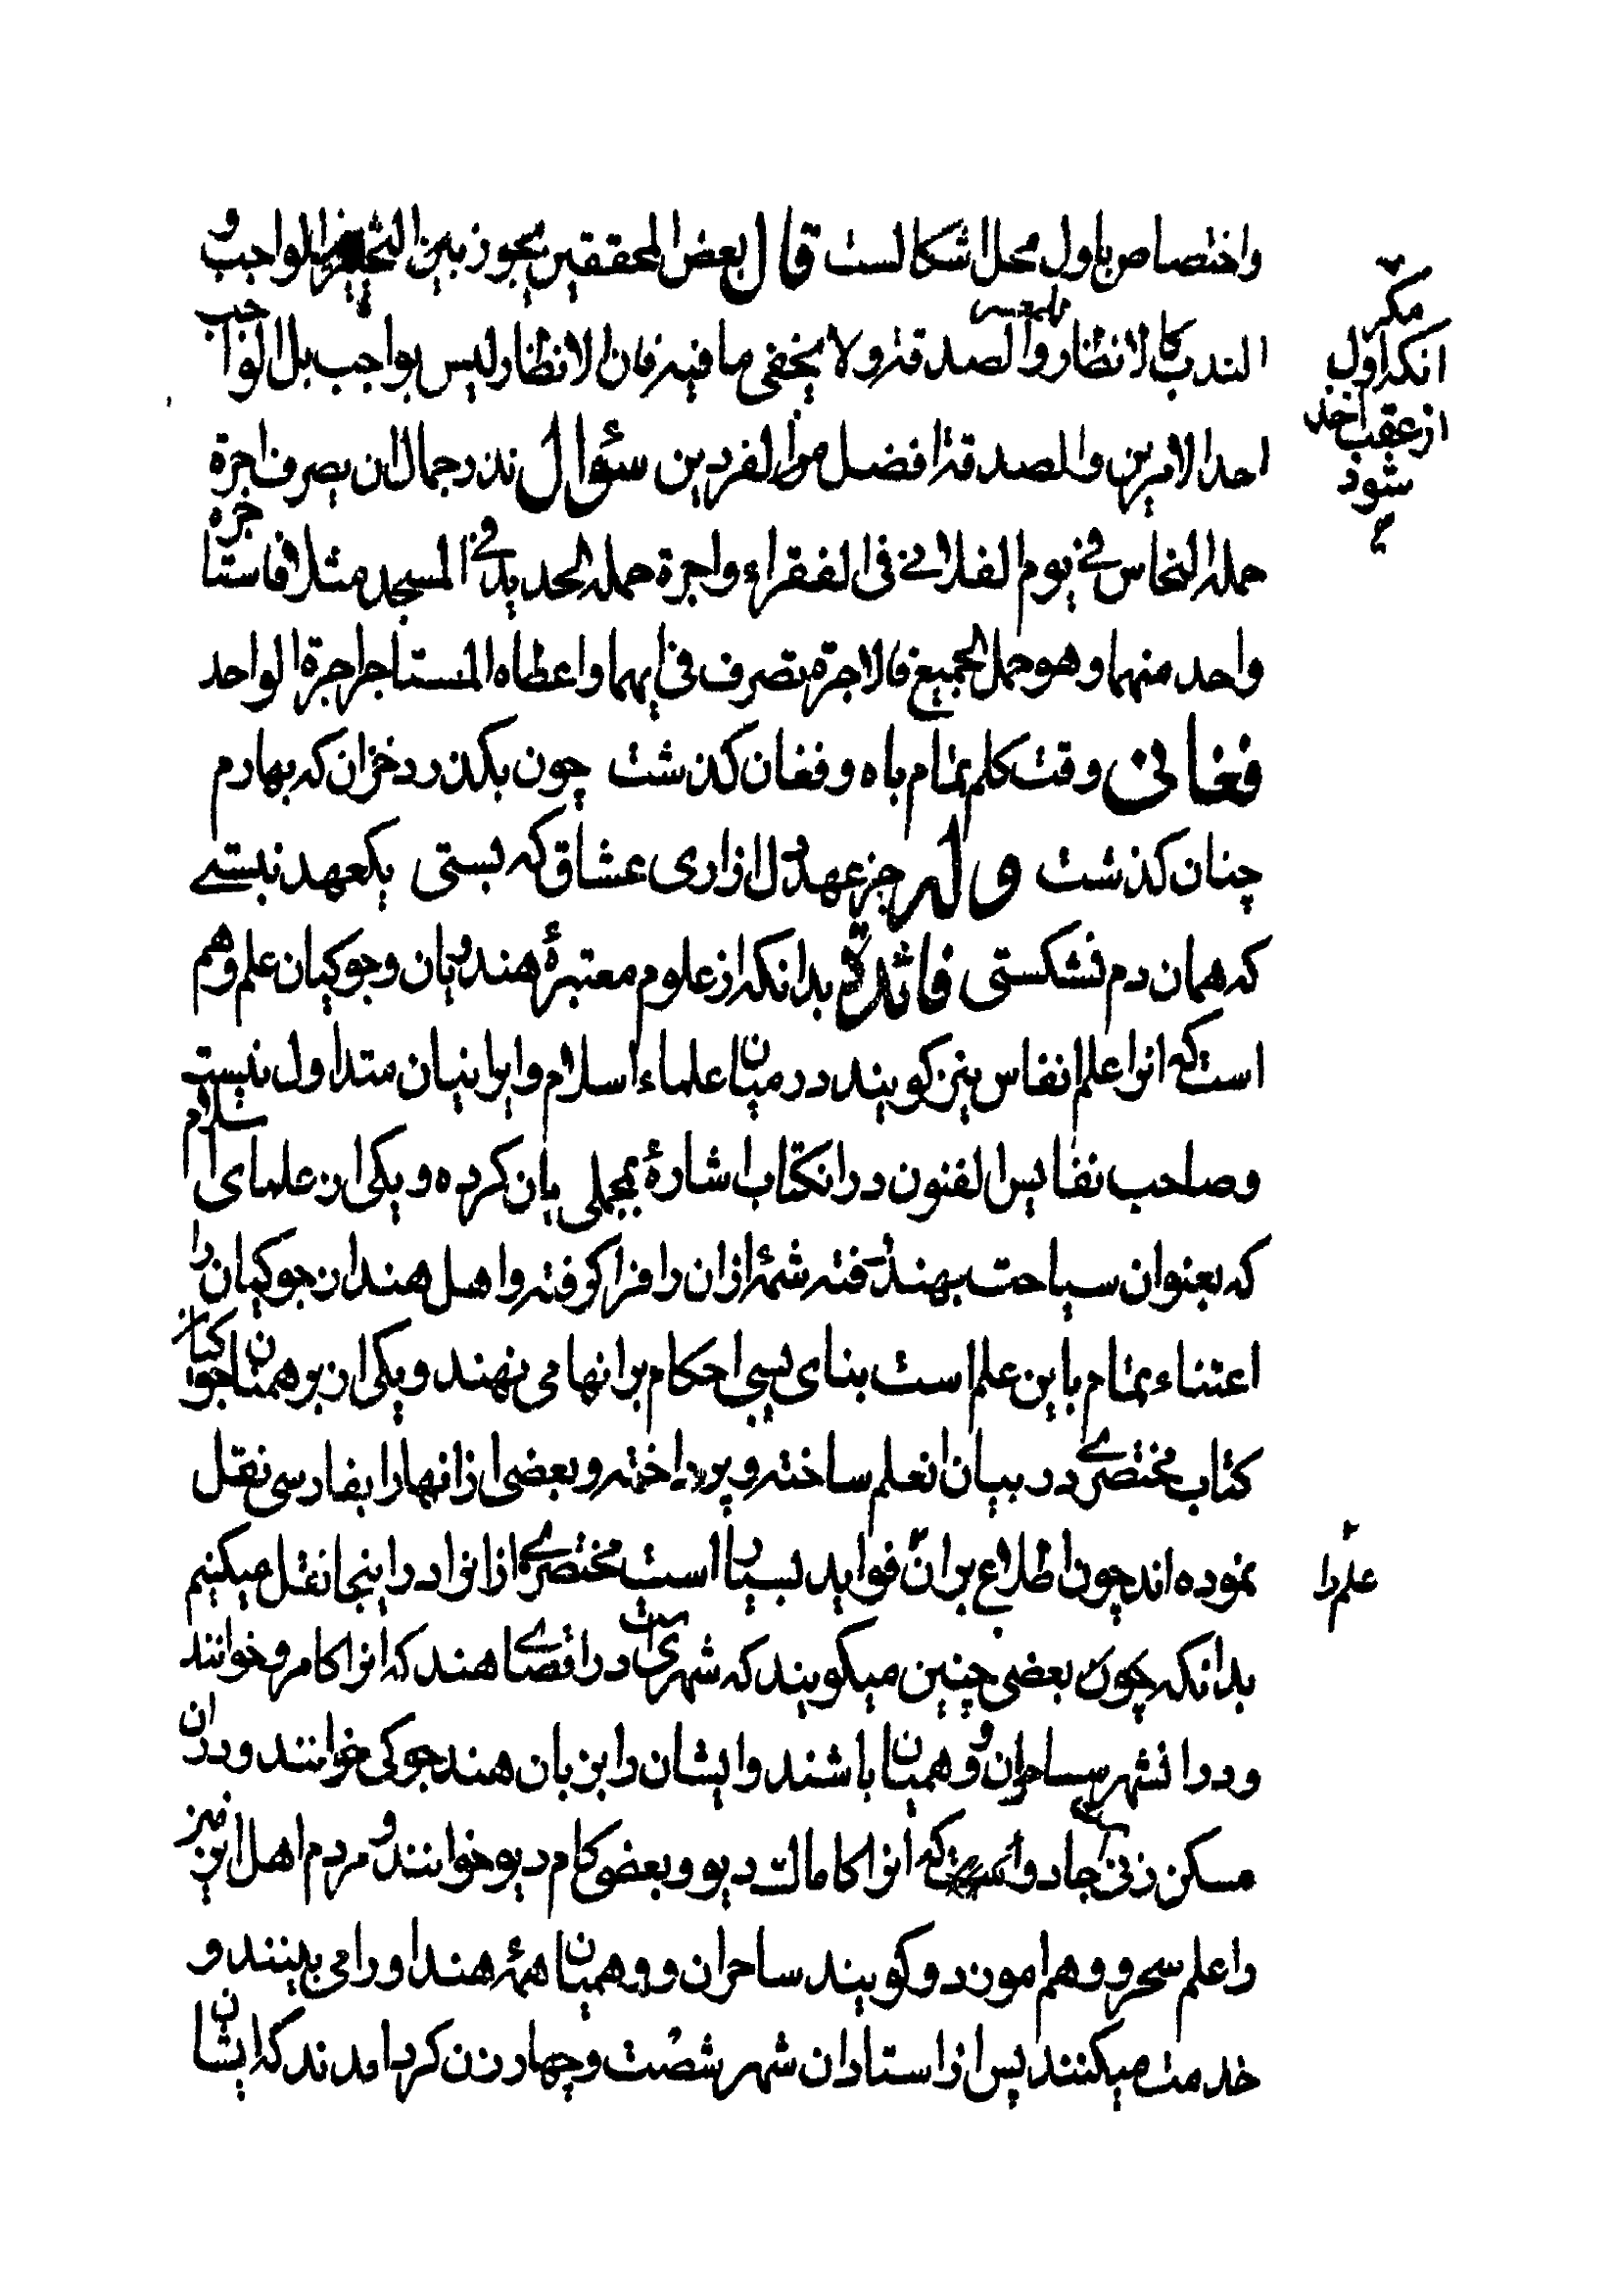 واختصاص باول محل اشکالست قال بعض المحققین یجوز بین التخییر الواجب و
الندب کالانظار والصدقة ولا یخفی ما فیه فان الانظار لیس بواجب بل الواجب
احد الامرین والصدقة افضل الفردین سؤال نذر جمال ان یصرف اجرة
حمله النحاس فی یوم الفلانی فی الفقراء واجرة حمله الحدید فی المسجد مثلا فاستاجره
واحد منهما وهو حمل الجمیع فالاجرة تصرف فی ایهما واعطاه المستاجر اجرة الواحد
فغانی وقت کلم تمام باه و فغان کذشت چون بکذرد خزان که بهارم
چنان کذشت وله جز عهد دل ازاری عشاق که بستی یکعهد نبستی
که همان دم نشکستی فائدة بدانکه از علوم معتبرۀ هندویان وجوکیان علم وهم
است که انرا علم انفاس نیز کویند در میان علماء اسلام وایرانیان متداول نیست
وصاحب نفایس الفنون در انکتاب اشارۀ مجملی بان کرده و یکی از علمای اسلام
که بعنوان سیاحت بهند رفته شمۀ ازان را فرا کرفته واهل هند از جوکیان را
اعتناء تمام باین علم است بنای بسی احکام بر انها می نهند و یکی از برهمنان جوکیان
کتاب مختصری در بیان انعلم ساخته و پرداخته و بعضی از انها را بفارسی نقل
نموده اند چون اطلاع بر ان فواید بسیار است مختصری از انرا در اینجا نقل میکنیم
بدانکه چون بعضی چنین میکویند که شهری است در اقصای هند که انرا کامرو خوانند
و در انشهر ساحران و وهمیان باشند وایشان را بزبان هند جوکی خوانند و در ان
مسکن زنی جادو است که انرا کاماک دیو و بعضی کام دیو خوانند و مردم اهل این
را علم سحر و وهم اموزد و کویند ساحران و وهمیان همۀ هند او را می بینند و
خدمت میکنند پس از استادان شهر شصت و چهار زن کرد امدند که ایشان
مکر
انکه اول
از عقب اخذ
شود
علم را